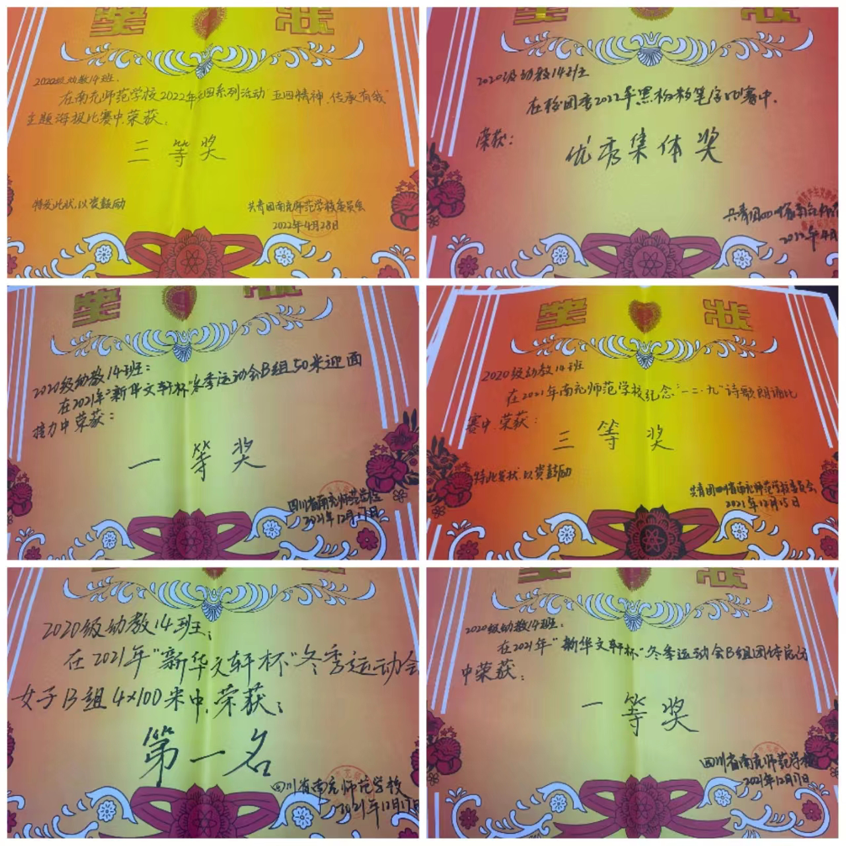 奖 状
2020级幼教14班:
在南充师范学校2022年五四系列活动 五四精神,传承有我"
主题海报比赛中,荣获:
三等奖
特发此状,以资鼓励
共青团南充师范学校委员会
2022年4月28日
2020级幼教14班
在校团委2022年黑板粉笔字比赛中,
荣获:
优秀集体奖
共青团四川省南充师范
2022年4月
奖 状
2020级幼教14班:
在2021年"新华文轩杯"冬季运动会B组50米迎面
接力中荣获:
一等奖
四川省南充师范学校
2021年12月17日
奖 状
2020级幼教14班
在2021年南充师范学校纪念"一二·九"诗歌朗诵比
赛中 荣获:
三等奖
特此发状,以资鼓励
共青团四川省南充师范学校委员会
2021年12月15日
2020级幼教14班:
在2021年"新华文轩杯"冬季运动会
女子B组4×100米中,荣获:
第一名
四川省南充师范学校
2021年12月17日
2020级幼教14班:
在2021年"新华文轩杯"冬季运动会B组团体总分
中荣获:
一等奖
四川省南充师范学校
2021年12月17日